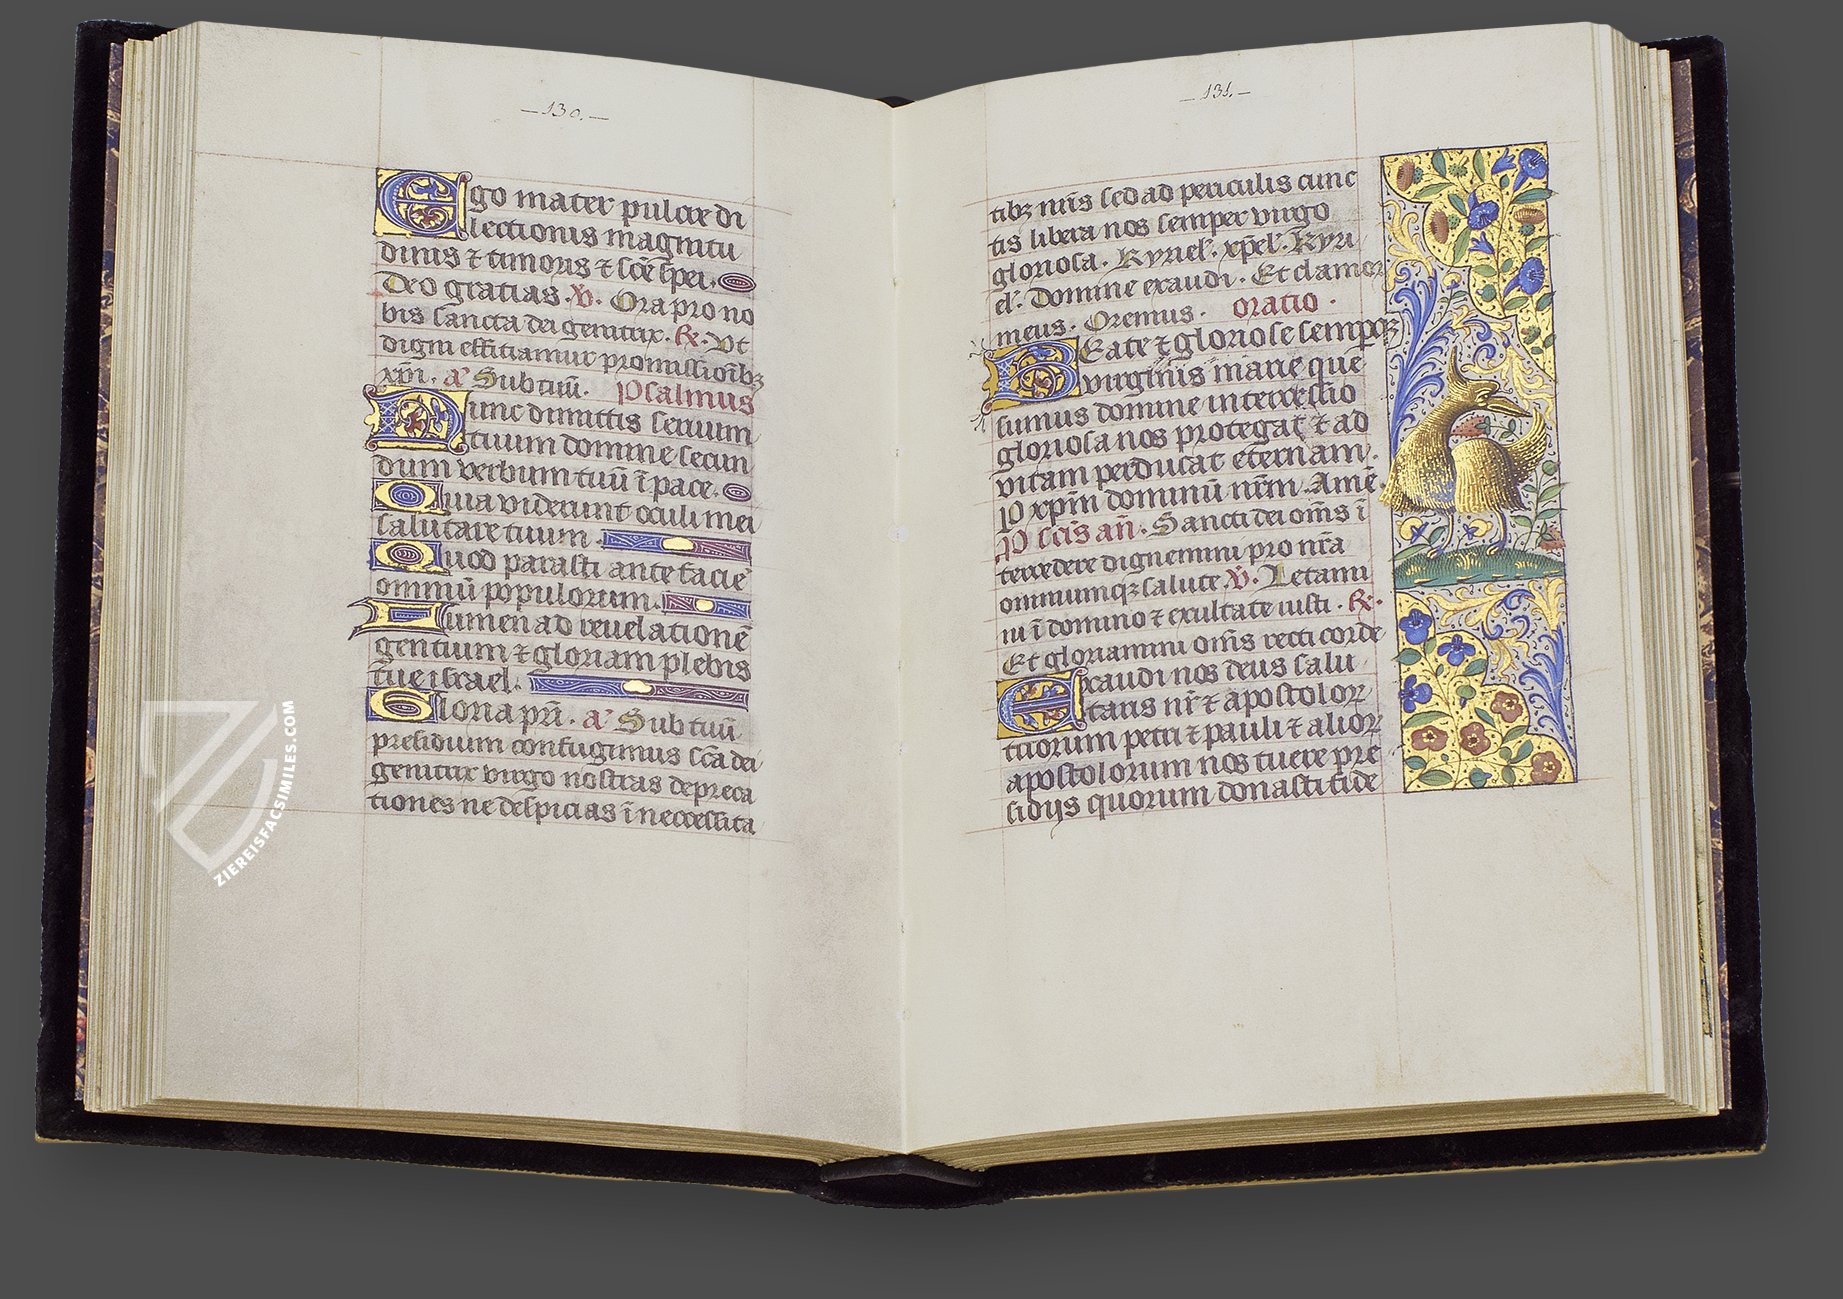 —130.—
Ego mater pulcre di
lectionis magnitu
dinis ⁊ timoris ⁊ sc̄e spei.
Deo gratias. ℣. Ora pro no
bis sancta dei genitrix. ℟. Vt
digni efficiamur promissioībꝫ
xpi. a᷎ Sub tuū. Psalmus
Nunc dimittis seruum
tuum domine secun
dum verbum tuū ī pace.
Quia viderunt oculi mei
salutare tuum.
Quod parasti ante facie᷎
omniū populorum.
Lumen ad reuelationē
gentium ⁊ gloriam plebis
tue israel.
Gloria pr̄i. a᷎ Sub tuū
presidium confugimus sc̄a dei
genitrix virgo nostras depreca
tiones ne despicias ī necessita
—131.—
tibꝫ nr̄is sed ad periculis cunc
tis libera nos semper virgo
gloriosa. Kyriel᷎. xp̄el᷎. Kyri
el᷎. Domine exaudi. Et clamor
meus. Oremus. oratio.
Beate ⁊ gloriose semperqꝫ
virginis marie que
sumus domine intercessio
gloriosa nos protegat ⁊ ad
vitam perducat eternam.
P xpm̄ dominū nr̄m. Amē.
P sc̄is an̄. Sancti dei om̄s ī
tercedere dignemini pro nr̄a
omniumqꝫ salute ℣. Letami
ni ī domino ⁊ exultate iusti. ℟.
Et gloriamini om̄s recti corde
Exaudi nos deus salu
taris nr̄ ⁊ apostoloꝝ
tuorum petri ⁊ pauli ⁊ alioꝝ
apostolorum nos tuere pre
sidijs quorum donasti fide
ZIEREISFACSIMILES.COM